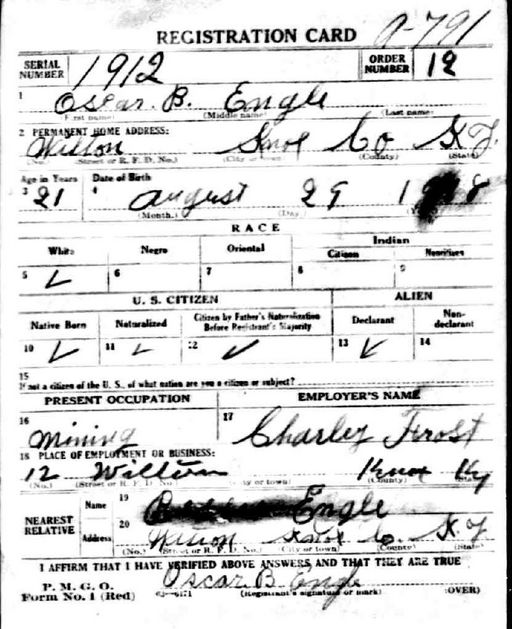 REGISTRATION CARD A-791
SERIAL NUMBER 1912 ORDER NUMBER 12
1 Oscar B. Engle
(First name) (Middle name) (Last name)
2 PERMANENT HOME ADDRESS:
Wilton Knox Co Ky
(No.) (Street or R. F. D. No.) (City or town) (County) (State)
Age in Years Date of Birth
3 21 4 August 29
(Month.) (Day.)
RACE
White Negro Oriental Indian
Citizen Noncitizen
5 ✓ 6 7 8 9
U. S. CITIZEN ALIEN
Native Born Naturalized Citizen by Father's Naturalization Before Registrant's Majority Declarant Non-declarant
10 ✓ 11 ✓ 12 ✓ 13 ✓ 14
15
If not a citizen of the U. S., of what nation are you a citizen or subject?
PRESENT OCCUPATION EMPLOYER'S NAME
16 Mining 17 Charley Frost
18 PLACE OF EMPLOYMENT OR BUSINESS:
12 Wilton Knox Ky
(No.) (Street or R. F. D. No.) (City or town) (County) (State)
NEAREST RELATIVE Name 19 Engle
Address 20 Wilson Knox Co. Ky
(No.) (Street or R. F. D. No.) (City or town) (County) (State)
I AFFIRM THAT I HAVE VERIFIED ABOVE ANSWERS AND THAT THEY ARE TRUE
P. M. G. O. Oscar B. Engle
Form No. 1 (Red) (Registrant's signature or mark) (OVER)